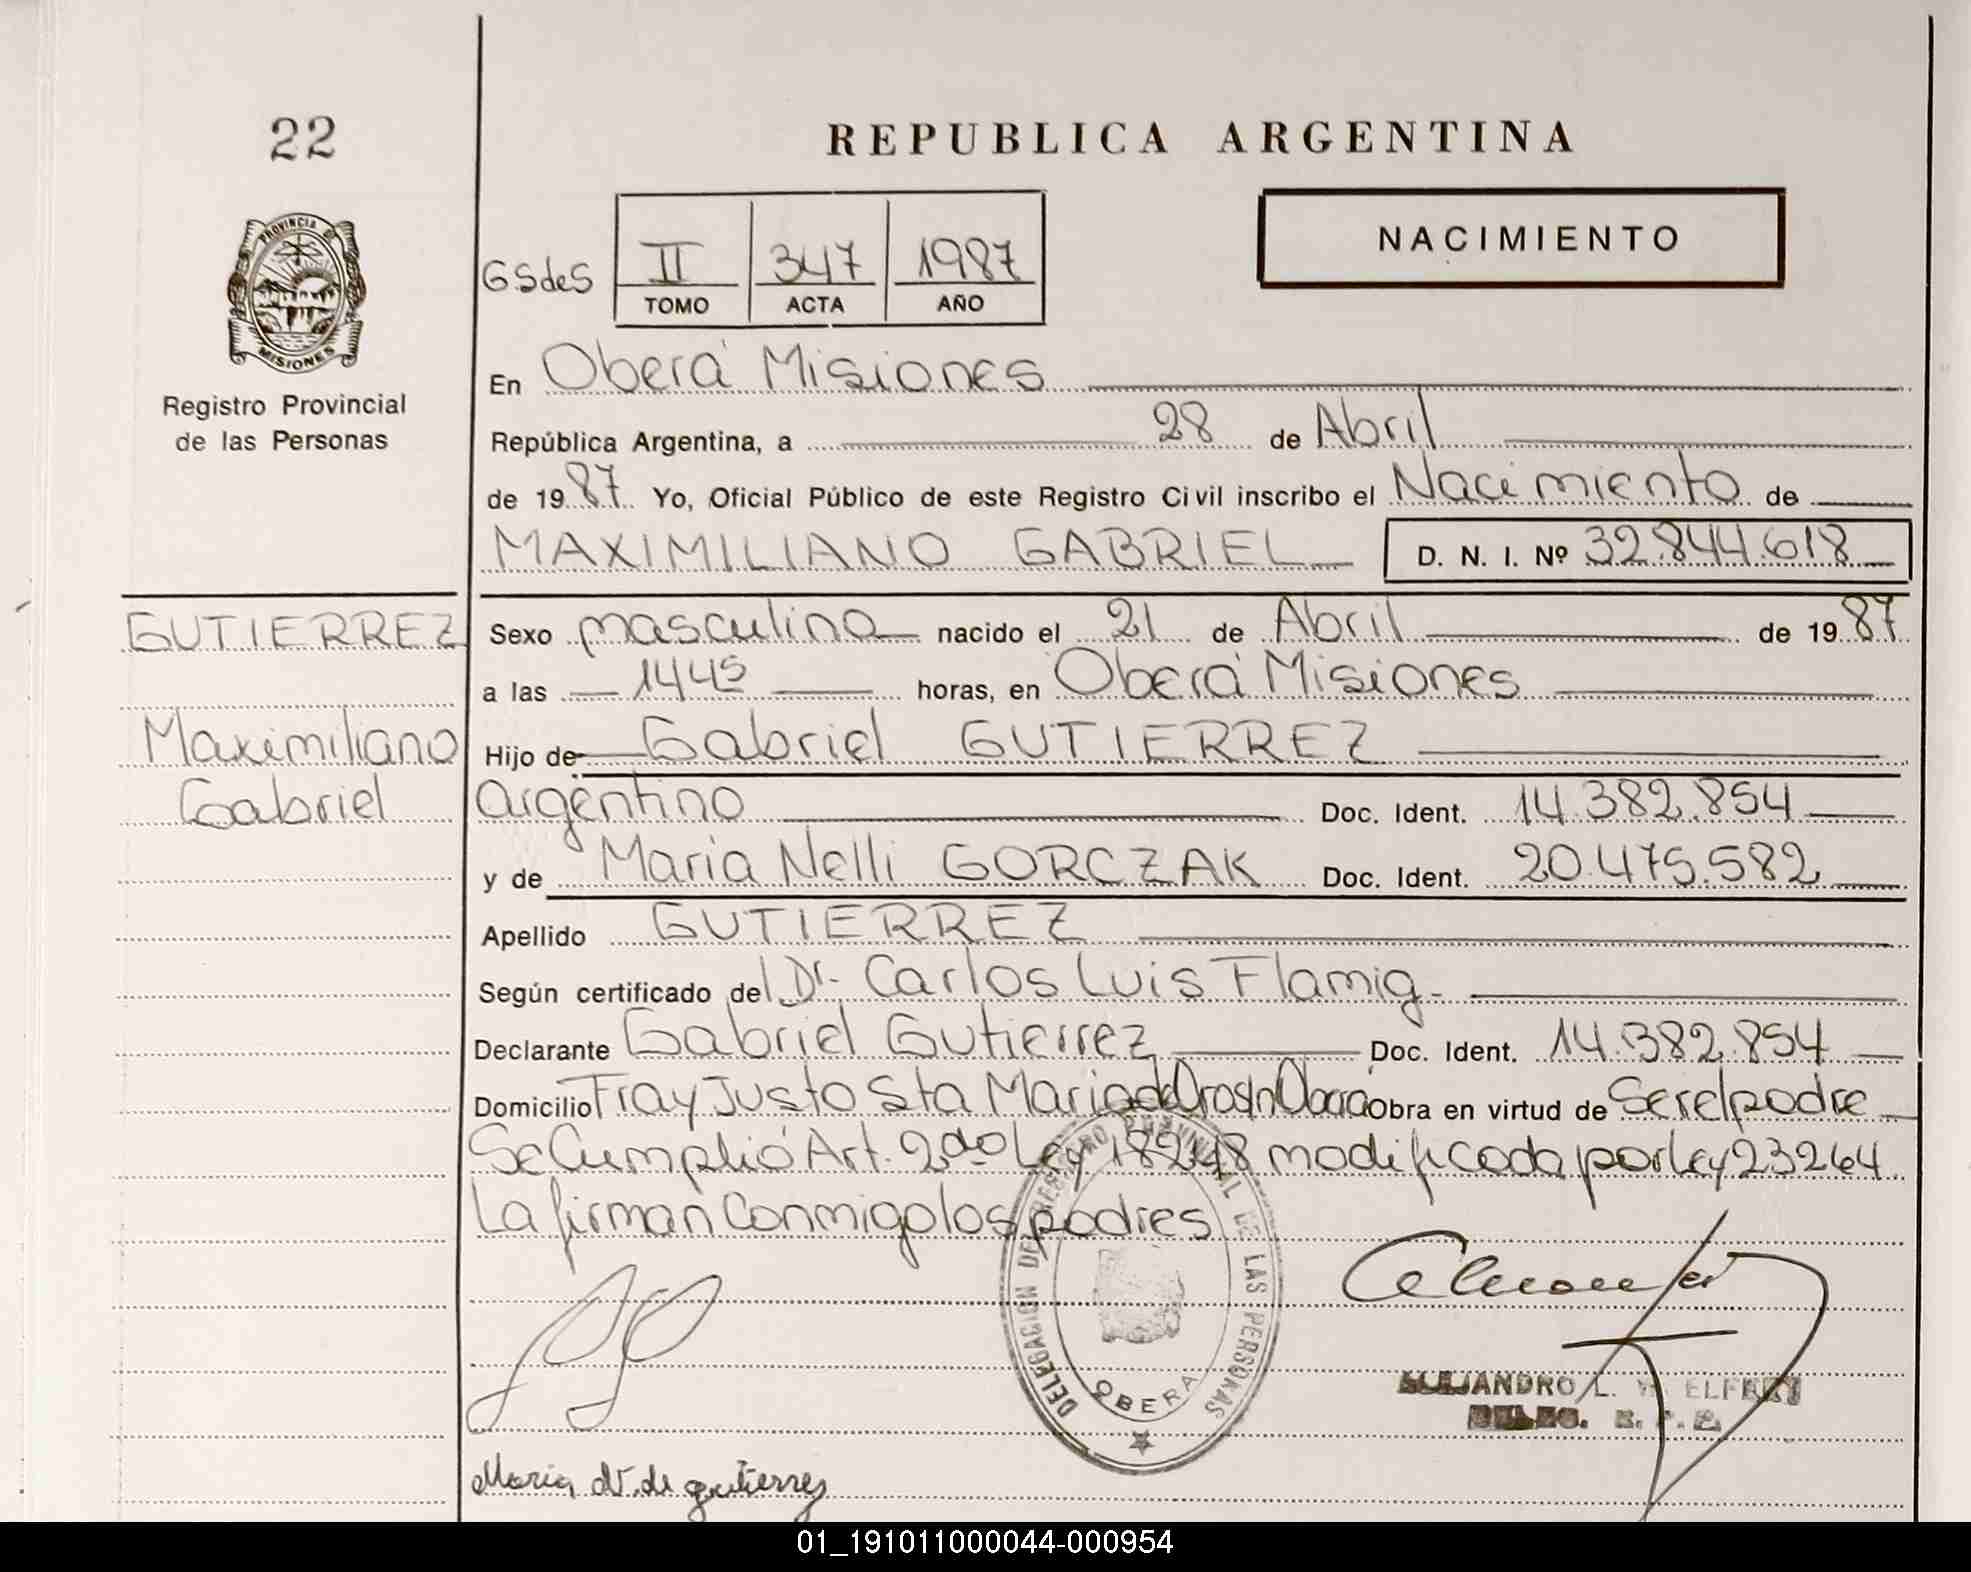 22
REPUBLICA ARGENTINA
NACIMIENTO
PROVINCIA DE
MISIONES
Registro Provincial
de las Personas
GSdeS
II 347 1987
TOMO ACTA AÑO
En Oberá Misiones
República Argentina, a 28 de Abril
de 1987 Yo, Oficial Público de este Registro Civil inscribo el Nacimiento de
MAXIMILIANO GABRIEL D. N. I. Nº 32.844.618
GUTIERREZ
Maximiliano
Gabriel
Sexo masculino nacido el 21 de Abril de 1987
a las 1445 horas, en Oberá Misiones
Hijo de Gabriel GUTIERREZ
argentino Doc. Ident. 14.382.854
y de Maria Nelli GORCZAK Doc. Ident. 20.475.582
Apellido GUTIERREZ
Según certificado del Dr. Carlos Luis Flamig
Declarante Gabriel Gutierrez Doc. Ident. 14.382.854
Domicilio Fray Justo Sta Maria de Oro s/n Oberá Obra en virtud de Ser el padre
Se Cumplió Art. 2do Ley 18248 modificada por Ley 23264
La firman Conmigo los padres
DELEGACIÓN DEL REGISTRO PROVINCIAL DE LAS PERSONAS
OBERA
ALEJANDRO L.
Maria N. de gutierrez
01_191011000044-000954